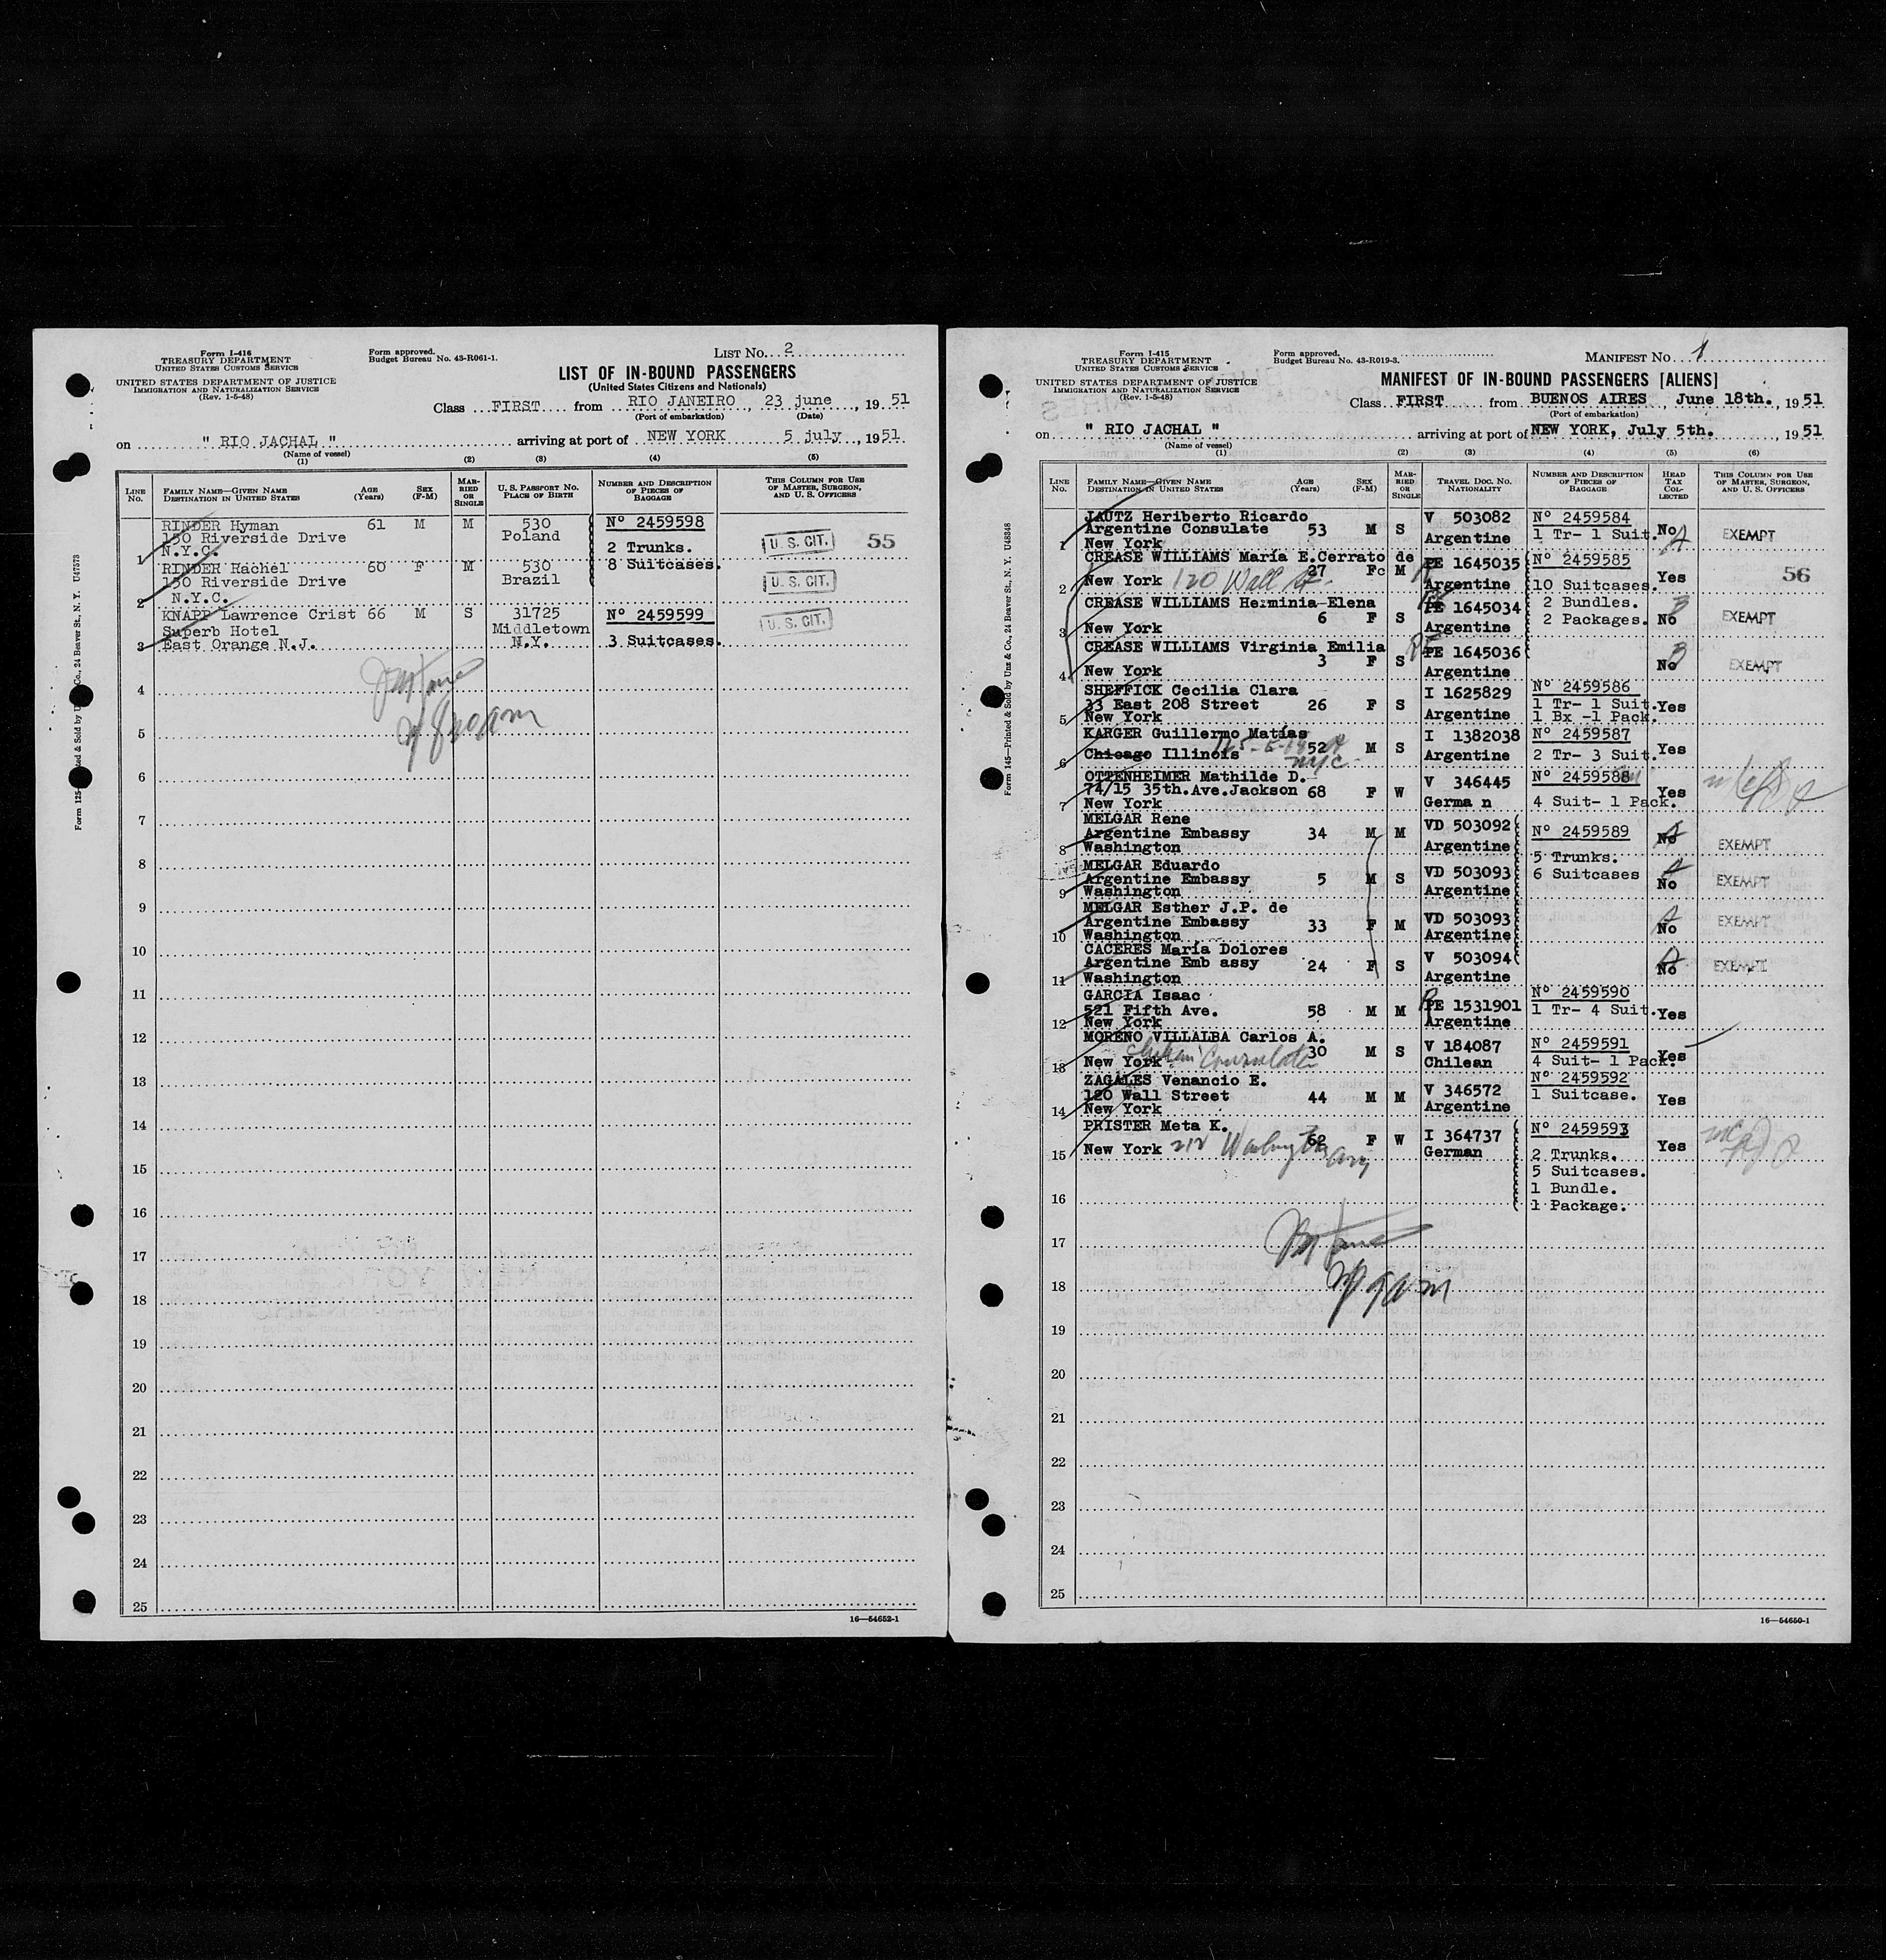 Form I-416
TREASURY DEPARTMENT
UNITED STATES CUSTOMS SERVICE
UNITED STATES DEPARTMENT OF JUSTICE
IMMIGRATION AND NATURALIZATION SERVICE
(Rev. 1-5-48)
Form approved.
Budget Bureau No. 43-R061-1.
LIST No. 2
LIST OF IN-BOUND PASSENGERS
(United States Citizens and Nationals)
Class FIRST from RIO JANEIRO, 23 june, 1951
(Port of embarkation) (Date)
on " RIO JACHAL " arriving at port of NEW YORK 5 july, 1951
(Name of vessel)
(1) (2) (3) (4) (5)
LINE No. FAMILY NAME—GIVEN NAME DESTINATION IN UNITED STATES AGE (Years) SEX (F-M) MARRIED OR SINGLE U. S. PASSPORT No. PLACE OF BIRTH NUMBER AND DESCRIPTION OF PIECES OF BAGGAGE THIS COLUMN FOR USE OF MASTER, SURGEON, AND U. S. OFFICERS
RINDER Hyman 61 M M 530 Nº 2459598
150 Riverside Drive Poland 2 Trunks. U. S. CIT. 55
1 N.Y.C. 8 Suitcases.
RINDER Rachel 60 F M 530
150 Riverside Drive Brazil U. S. CIT.
2 N.Y.C.
KNAPP Lawrence Crist 66 M S 31725 Nº 2459599 U. S. CIT.
Superb Hotel Middletown
3 East Orange N.J. N.Y. 3 Suitcases.
4
5
6
7
8
9
10
11
12
13
14
15
16
17
18
19
20
21
22
23
24
25
16—54652-1
Form I-415
TREASURY DEPARTMENT
UNITED STATES CUSTOMS SERVICE
UNITED STATES DEPARTMENT OF JUSTICE
IMMIGRATION AND NATURALIZATION SERVICE
(Rev. 1-5-48)
Form approved.
Budget Bureau No. 43-R019-3.
MANIFEST No 1
MANIFEST OF IN-BOUND PASSENGERS [ALIENS]
Class FIRST from BUENOS AIRES, June 18th., 1951
(Port of embarkation)
on " RIO JACHAL " arriving at port of NEW YORK, July 5th., 1951
(Name of vessel)
(1) (2) (3) (4) (5) (6)
Form 145—Printed & Sold by Unz & Co., 24 Beaver St., N. Y. U48348
LINE No. FAMILY NAME—GIVEN NAME DESTINATION IN UNITED STATES AGE (Years) SEX (F-M) MARRIED OR SINGLE TRAVEL DOC. No. NATIONALITY NUMBER AND DESCRIPTION OF PIECES OF BAGGAGE HEAD TAX COLLECTED THIS COLUMN FOR USE OF MASTER, SURGEON, AND U. S. OFFICERS
JAUTZ Heriberto Ricardo V 503082 Nº 2459584
Argentine Consulate 53 M S Argentine 1 Tr- 1 Suit. No EXEMPT
1 New York
CREASE WILLIAMS María E.Cerrato de PE 1645035 Nº 2459585
27 Fc M
2 New York 120 Wall St. Argentine 10 Suitcases. Yes 56
CREASE WILLIAMS Herminia-Elena PE 1645034 2 Bundles.
6 F S 2 Packages. No EXEMPT
3 New York Argentine
CREASE WILLIAMS Virginia Emilia PE 1645036
3 F S No EXEMPT
4 New York Argentine
SHEFFICK Cecilia Clara I 1625829 Nº 2459586
33 East 208 Street 26 F S 1 Tr- 1 Suit. Yes
5 New York Argentine 1 Bx -1 Pack.
KARGER Guillermo Matías I 1382038 Nº 2459587
6 Chicago Illinois 52 M S Argentine 2 Tr- 3 Suit. Yes
NYC
OTTENHEIMER Mathilde D. V 346445 Nº 2459588
74/15 35th.Ave.Jackson 68 F W Yes
7 New York Germa n 4 Suit- 1 Pack.
MELGAR Rene VD 503092 Nº 2459589
Argentine Embassy 34 M M No
8 Washington Argentine 5 Trunks. EXEMPT
MELGAR Eduardo VD 503093 6 Suitcases
Argentine Embassy 5 M S No EXEMPT
9 Washington Argentine
MELGAR Esther J.P. de VD 503093
Argentine Embassy 33 F M No EXEMPT
10 Washington Argentine
CACERES María Dolores V 503094
Argentine Emb assy 24 F S No EXEMPT
11 Washington Argentine
GARCIA Isaac Nº 2459590
521 Fifth Ave. 58 M M PE 1531901 1 Tr- 4 Suit. Yes
12 New York Argentine
MORENO VILLALBA Carlos A. V 184087 Nº 2459591
30 M S Yes
13 New York Chilean Consulate Chilean 4 Suit- 1 Pack.
ZAGALES Venancio E. V 346572 Nº 2459592
120 Wall Street 44 M M 1 Suitcase. Yes
14 New York Argentine
PRISTER Meta K. I 364737 Nº 2459593
15 New York 212 62 F W German 2 Trunks. Yes
5 Suitcases.
16 1 Bundle.
1 Package.
17
18
19
20
21
22
23
24
25
16—54650-1